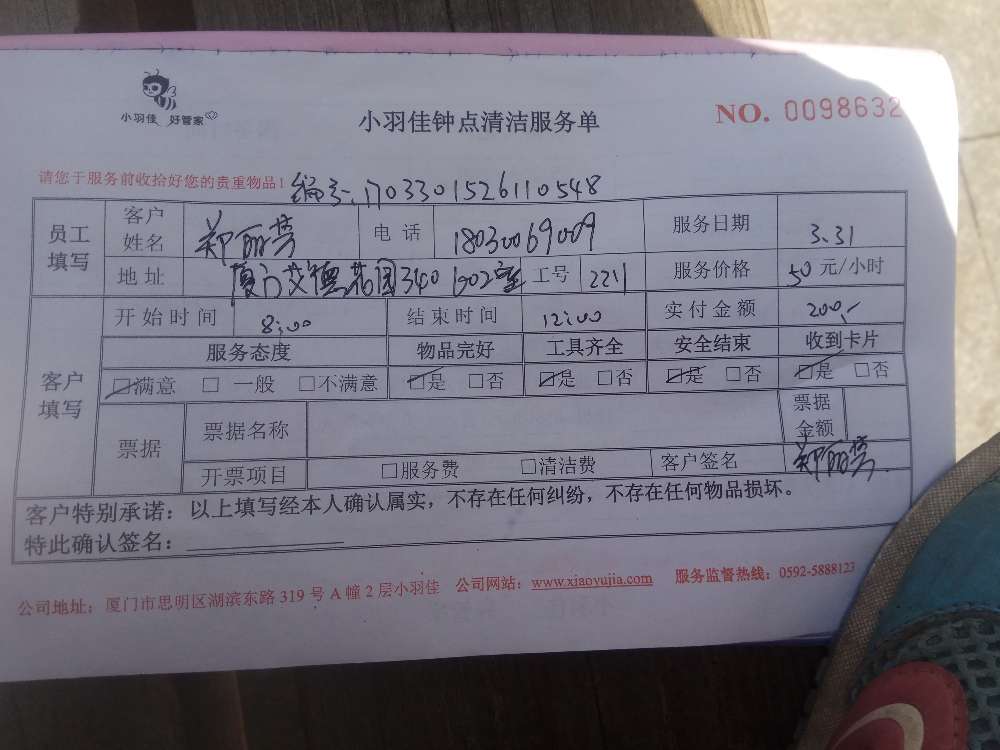 小羽佳 好管家
小羽佳钟点清洁服务单
NO. 0098632
请您于服务前收拾好您的贵重物品！
编号:1703301526110548
员工填写 客户姓名 郑丽芳 电话 18030069009 服务日期 3.31
地址 厦门艾德花园340 602室 工号 2211 服务价格 50元/小时
客户填写 开始时间 8:00 结束时间 12:00 实付金额 200.-
服务态度 物品完好 工具齐全 安全结束 收到卡片
☑满意 □ 一般 □不满意 ☑是 □否 ☑是 □否 ☑是 □否 ☑是 □否
票据 票据名称 票据金额
开票项目 □服务费 □清洁费 客户签名 郑丽芳
客户特别承诺：以上填写经本人确认属实，不存在任何纠纷，不存在任何物品损坏。
特此确认签名：
公司地址：厦门市思明区湖滨东路 319 号 A 幢 2 层小羽佳 公司网站：www.xiaoyujia.com 服务监督热线：0592-5888123